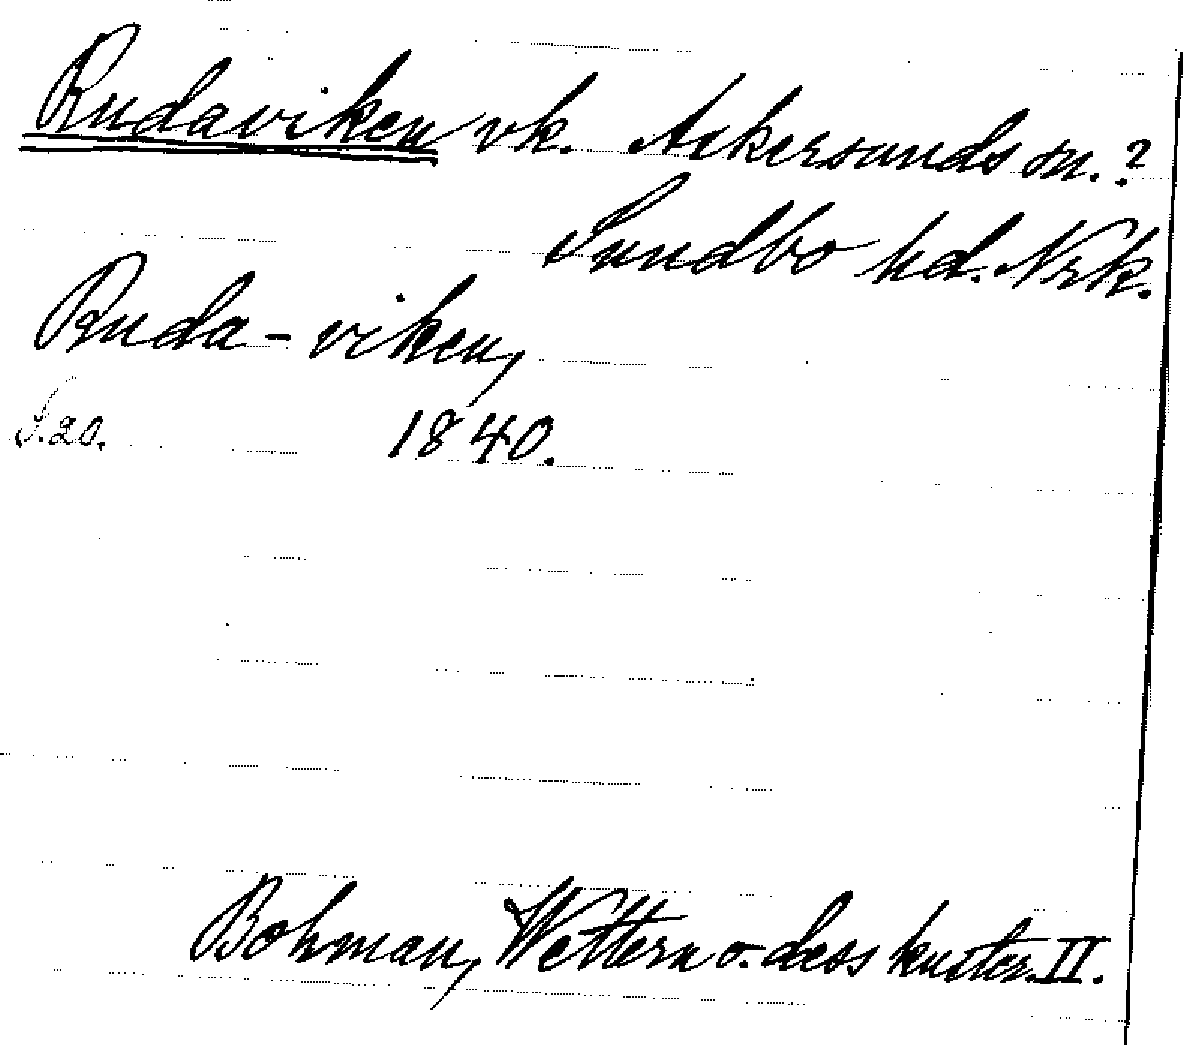 Rudaviken vk. Askersunds sn.?
Sundbo hd. Nrk.
Ruda-viken,
S.20. 1840.
Bohman, Wettern o. dess kuster. II.